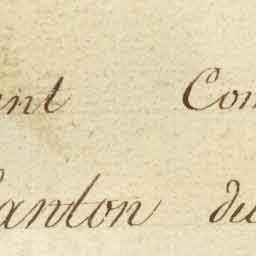 ent Com
Canton du